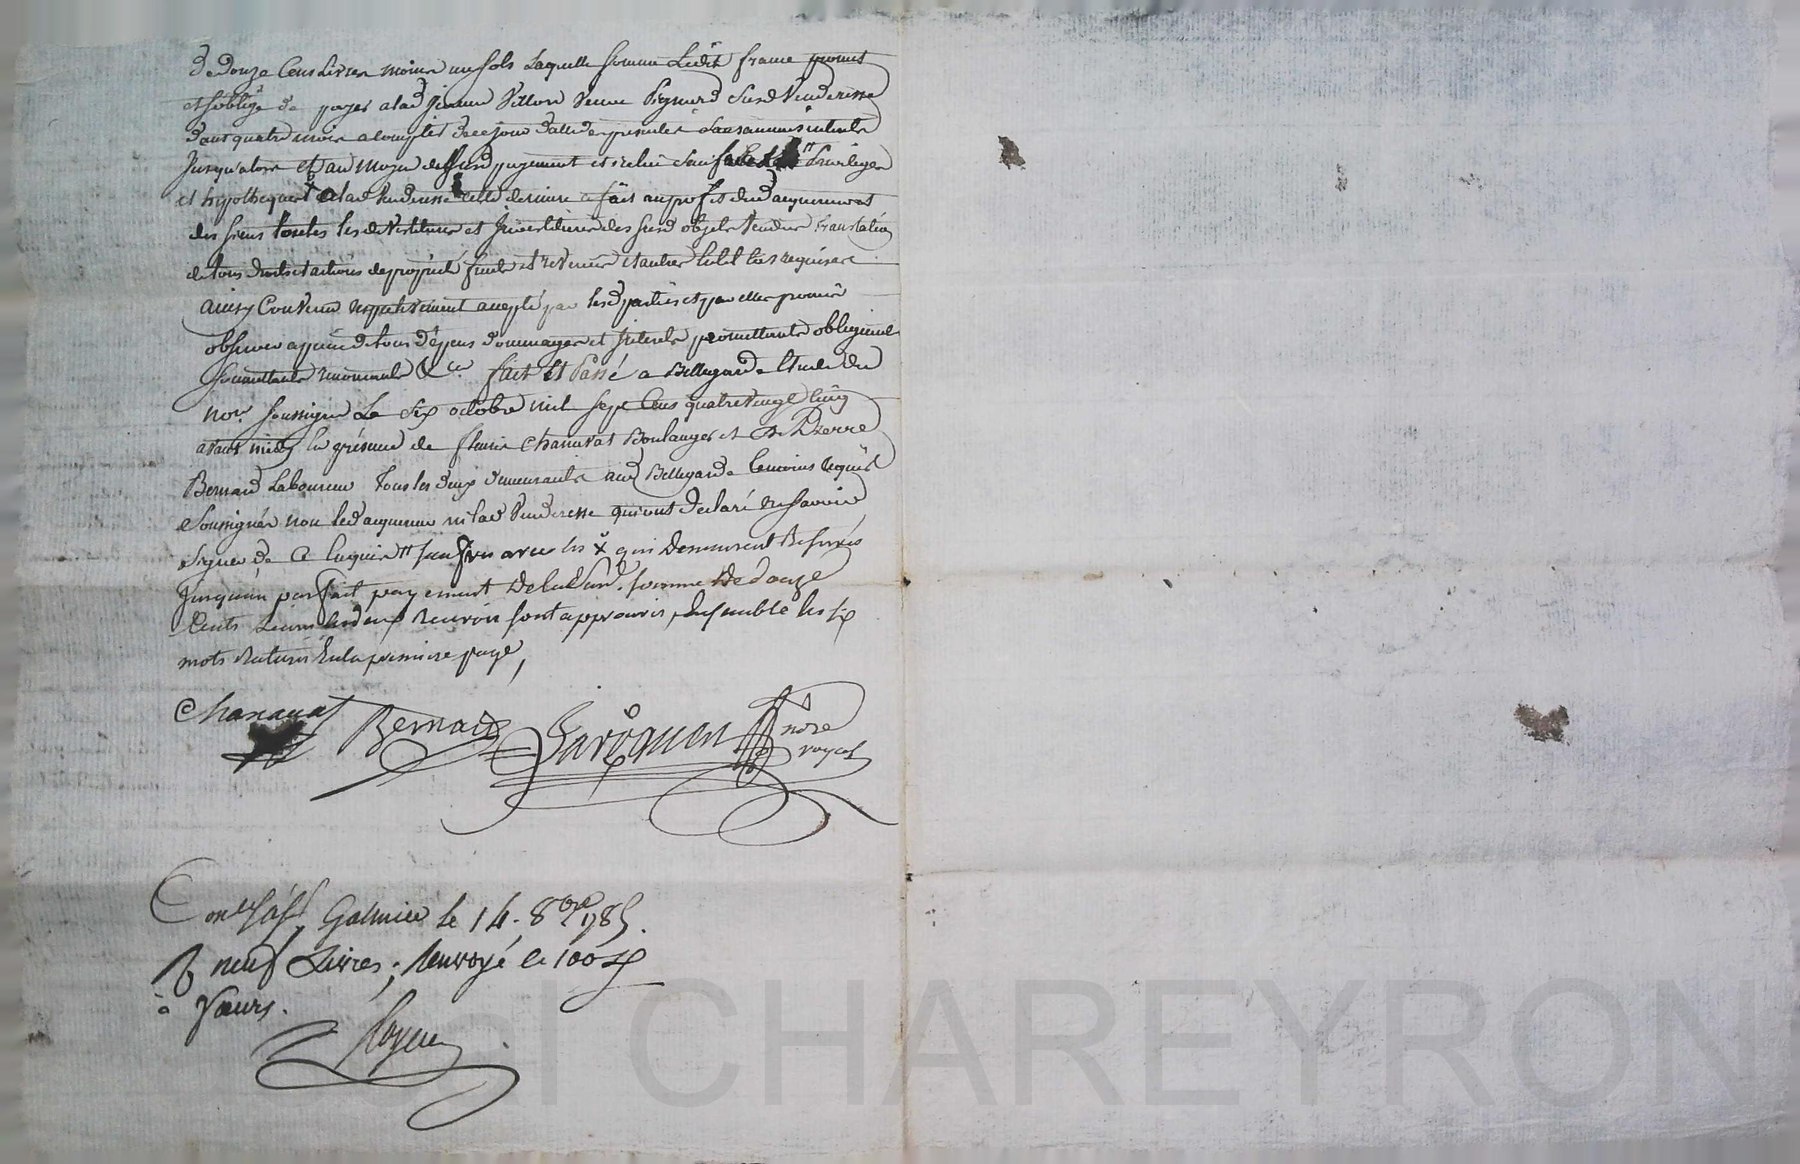 de douze Cens Livres moins un sols Laquelle somme Ledit frane promet
et s'oblige de payer a lad. Villon Veuve Pignard Sus.d Venderesse
dans quatre mois a compter de ce jour datte des presentes sans aucuns interets
Jusqu'alors et au moyen dessusd. payement et icelui Privilege
et hypotheque a lad. Venderesse cette derniere a fait au profit dud. acquereur et
des siens toutes les devestitures et Investitures des susd. objets Vendus translation
de tous droits et actions de propriété fruits et revenus et autres
ainsy Convenu respectivement accepté par lesd. parties et par elles promis
observer a peine de tous depens dommages et Interets promettants obligeants
soumettants renonceants &ca. fait Et Passé a Bellegarde Etude du
nore. soussigné Le Six octobre mil Sept Cens quatre vingt Cinq
avant midy En présence de Chanavat Boulanger et de Pierre
Bernard Laboureur tous les deux demeurants aud. Bellegarde temoins requis
Soussignés non led. acquereur ni lad. Venderesse qui ont declaré ne savoir
signer de Ce Enquis avec les qui demeurent Reservés
Jusqu'au parfait payement De lad. somme De douze
Cents Livres les deux Renvois sont approuvés, Ensemble les six
mots En la premiere page,
Chanavat Bernard nore
royal
Conllé à St. Galmier le 14. 8bre 1785.
R neuf Livres; renvoyé le 100
à Feurs.